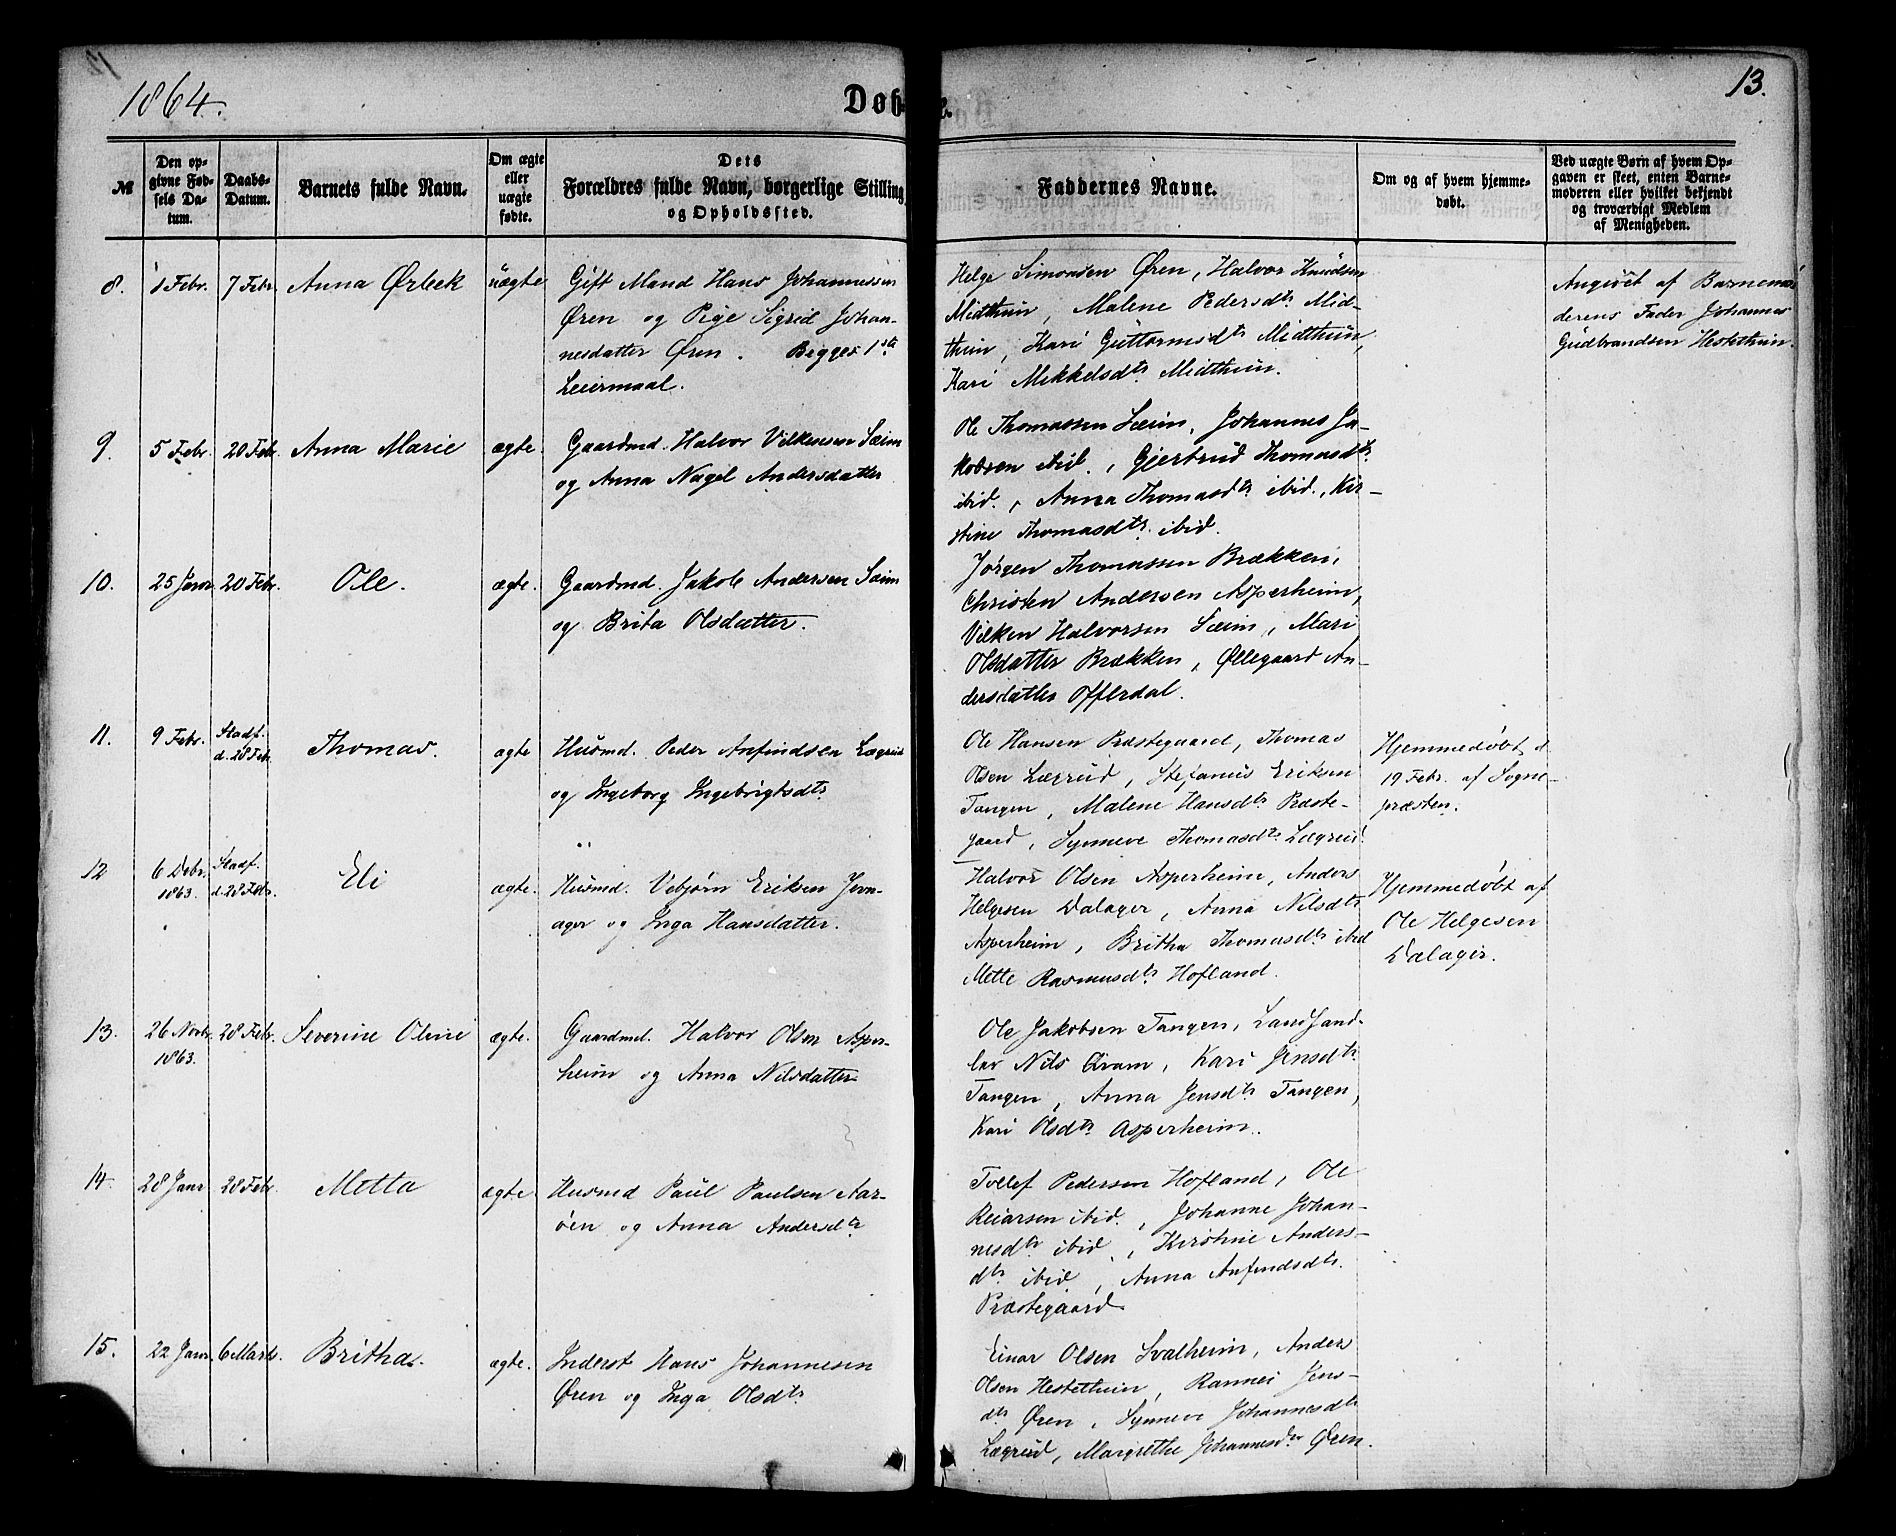 1864.
Døb
e.
13.
№
Den op-
givne Fød-
sels Da-
tum.
Daabs-
Datum.
Barnets fulde Navn.
Om ægte
eller
uægte
fødte.
Dets
Forældres fulde Navn, borgerlige Stilling
og Opholdssted.
Faddernes Navne.
Om og af hvem hjemme-
døbt.
Ved uægte Børn af hvem Op-
gaven er skeet, enten Barne-
moderen eller hvilket bekjendt
og troværdigt Medlem
af Menigheden.
8.
1 Febr.
7 Febr.
Anna Ørbek
uægte
Gift Mand Hans Johannessen
Øren og Pige Sigrid Johan-
nesdatter Øren. Begges 1ste
Leiermaal.
Helge Simonsen Øren, Halvor Knudsen
Midthun, Malene Pedersdtr Mid-
thun, Kari Guttormsdtr Midthun,
Kari Mikkelsdtr Midthun.
Angivet af Barnemo-
derens Fader Johannes
Gudbrandsen Hestethun.
9.
5 Febr.
20 Febr.
Anna Marie
ægte.
Gaardmd. Halvor Vilkensen Sæim
og Anna Nagel Andersdatter
Ole Thomassen Sæim, Johannes Ja-
kobsen ibid., Gjertrud Thomasdtr
ibid., Anna Thomasdtr ibid., Kir-
stine Thomasdtr. ibid.
10.
25 Janr
20 Febr.
Ole.
ægte.
Gaardmd. Jakob Andersen Sæim
og Brita Olsdatter.
Jørgen Thomassen Brækken,
Christen Andersen Asperheim,
Vilken Halvorsen Sæim, Mari
Olsdatter Brækken, Øllegaard An-
dersdatter Offerdal.
11.
9 Febr.
Stadf.
d. 28 Febr
Thomas.
ægte
Husmd. Peder Anfindsen Lægreid
og Ingeborg Ingebrigtsdtr.
Ole Hansen Præstegaard, Thomas
Olsen Lægreid, Stefanus Eriksen
Tangen, Malene Hansdtr Præste-
gaard, Synneve Thomasdtr Lægreid.
Hjemmedøbt d.
19 Febr. af Sogne-
præsten.
12
6 Debr.
1863.
Stadf.
d. 28 Febr.
Eli
ægte.
Husmd. Vebjørn Eriksen Jern-
ager og Inga Hansdatter.
Halvor Olsen Asperheim, Anders
Helgesen Dalager, Anna Nilsdtr
Asperheim, Britha Thomasdtr ibid
Mette Rasmusdtr Hofland.
Hjemmedøbt af
Ole Helgesen
Dalager.
13.
26 Novbr.
1863.
28 Febr.
Severine Oline
ægte.
Gaardmd. Halvor Olsen Asper-
heim og Anna Nilsdatter
Ole Jakobsen Tangen, Landhand-
ler Nils Qvam, Kari Jensdtr
Tangen, Anna Jensdtr Tangen,
Kari Olsdtr Asperheim.
14.
28 Janr
28 Febr
Metta
ægte.
Husmd Paul Paulsen Aar-
øen og Anna Andersdtr
Tollef Pedersen Hofland, Ole
Reiarsen ibid., Johanne Johan-
nesdtr ibid, Kirstine Anders-
dtr ibid, Anna Anfindsdtr.
Præstegaard
15.
22 Janr.
6 Marts.
Britha.
ægte.
Inderst Hans Johannesen
Øren og Inga Olsdtr
Einar Olsen Svalheim, Anders
Olsen Hestethun, Rannei Jens-
dtr Øren, Synneve Johannesdtr
Lægreid, Margrethe Johannesdtr Øren.